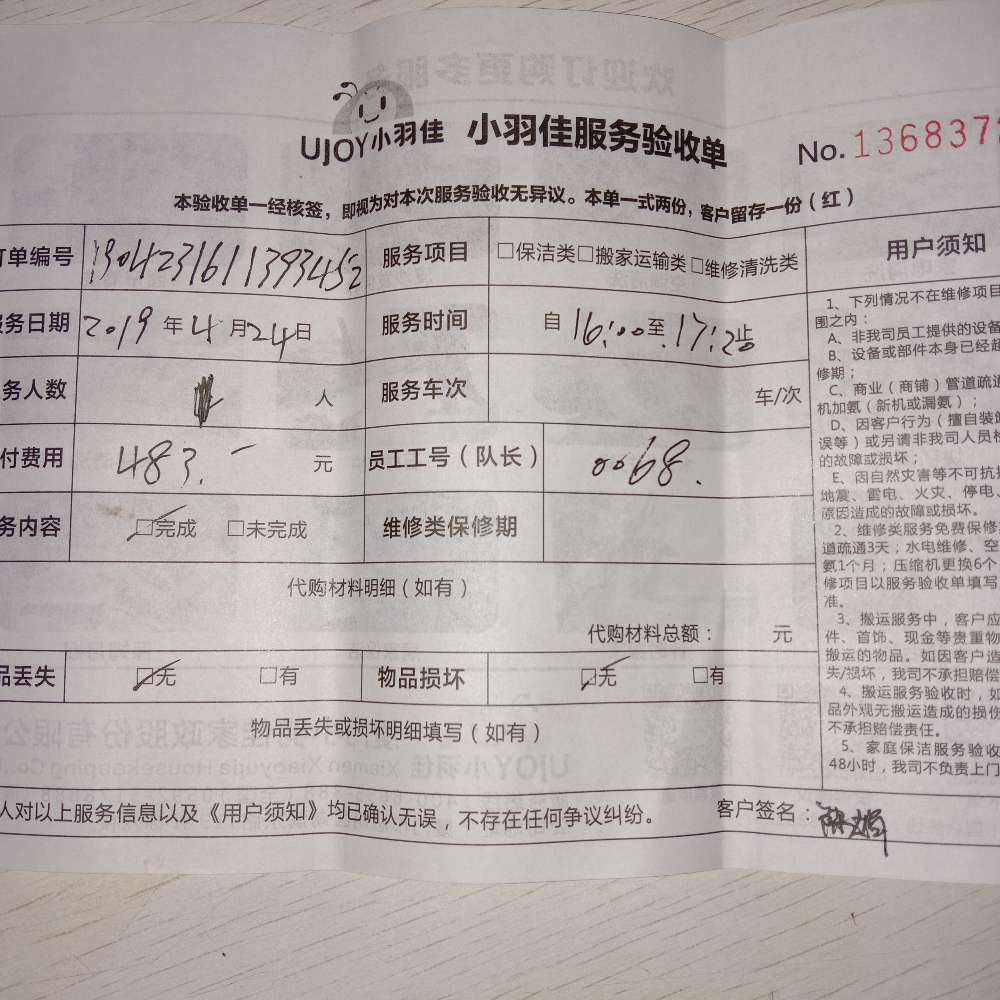 UJOY小羽佳 小羽佳服务验收单 No.136837
本验收单一经核签，即视为对本次服务验收无异议。本单一式两份，客户留存一份（红）
订单编号 1904231611393452 服务项目 □保洁类□搬家运输类□维修清洗类
务日期 2019 年 4 月 24 日 服务时间 自 16:00 至 17:25
务人数 人 服务车次 车/次
付费用 483. 元 员工工号（队长） 0068.
务内容 □完成 □未完成 维修类保修期
代购材料明细（如有）
代购材料总额： 元
品丢失 □无 □有 物品损坏 □无 □有
物品丢失或损坏明细填写（如有）
人对以上服务信息以及《用户须知》均已确认无误，不存在任何争议纠纷。 客户签名：
用户须知
1、下列情况不在维修项目
围之内：
A、非我司员工提供的设备
B、设备或部件本身已经超
修期；
C、商业（商铺）管道疏通
机加氨（新机或漏氨）；
D、因客户行为（擅自装
误等）或另请非我司人员
的故障或损坏；
E、因自然灾害等不可抗
地震、雷电、火灾、停电、
原因造成的故障或损坏。
2、维修类服务免费保修
道疏通3天；水电维修、空
氨1个月；压缩机更换6个
修项目以服务验收单填写
准。
3、搬运服务中，客户应
件、首饰、现金等贵重物
搬运的物品。如因客户造
失/损坏，我司不承担赔偿
4、搬运服务验收时，如
品外观无搬运造成的损伤
不承担赔偿责任。
5、家庭保洁服务验收
48小时，我司不负责上门